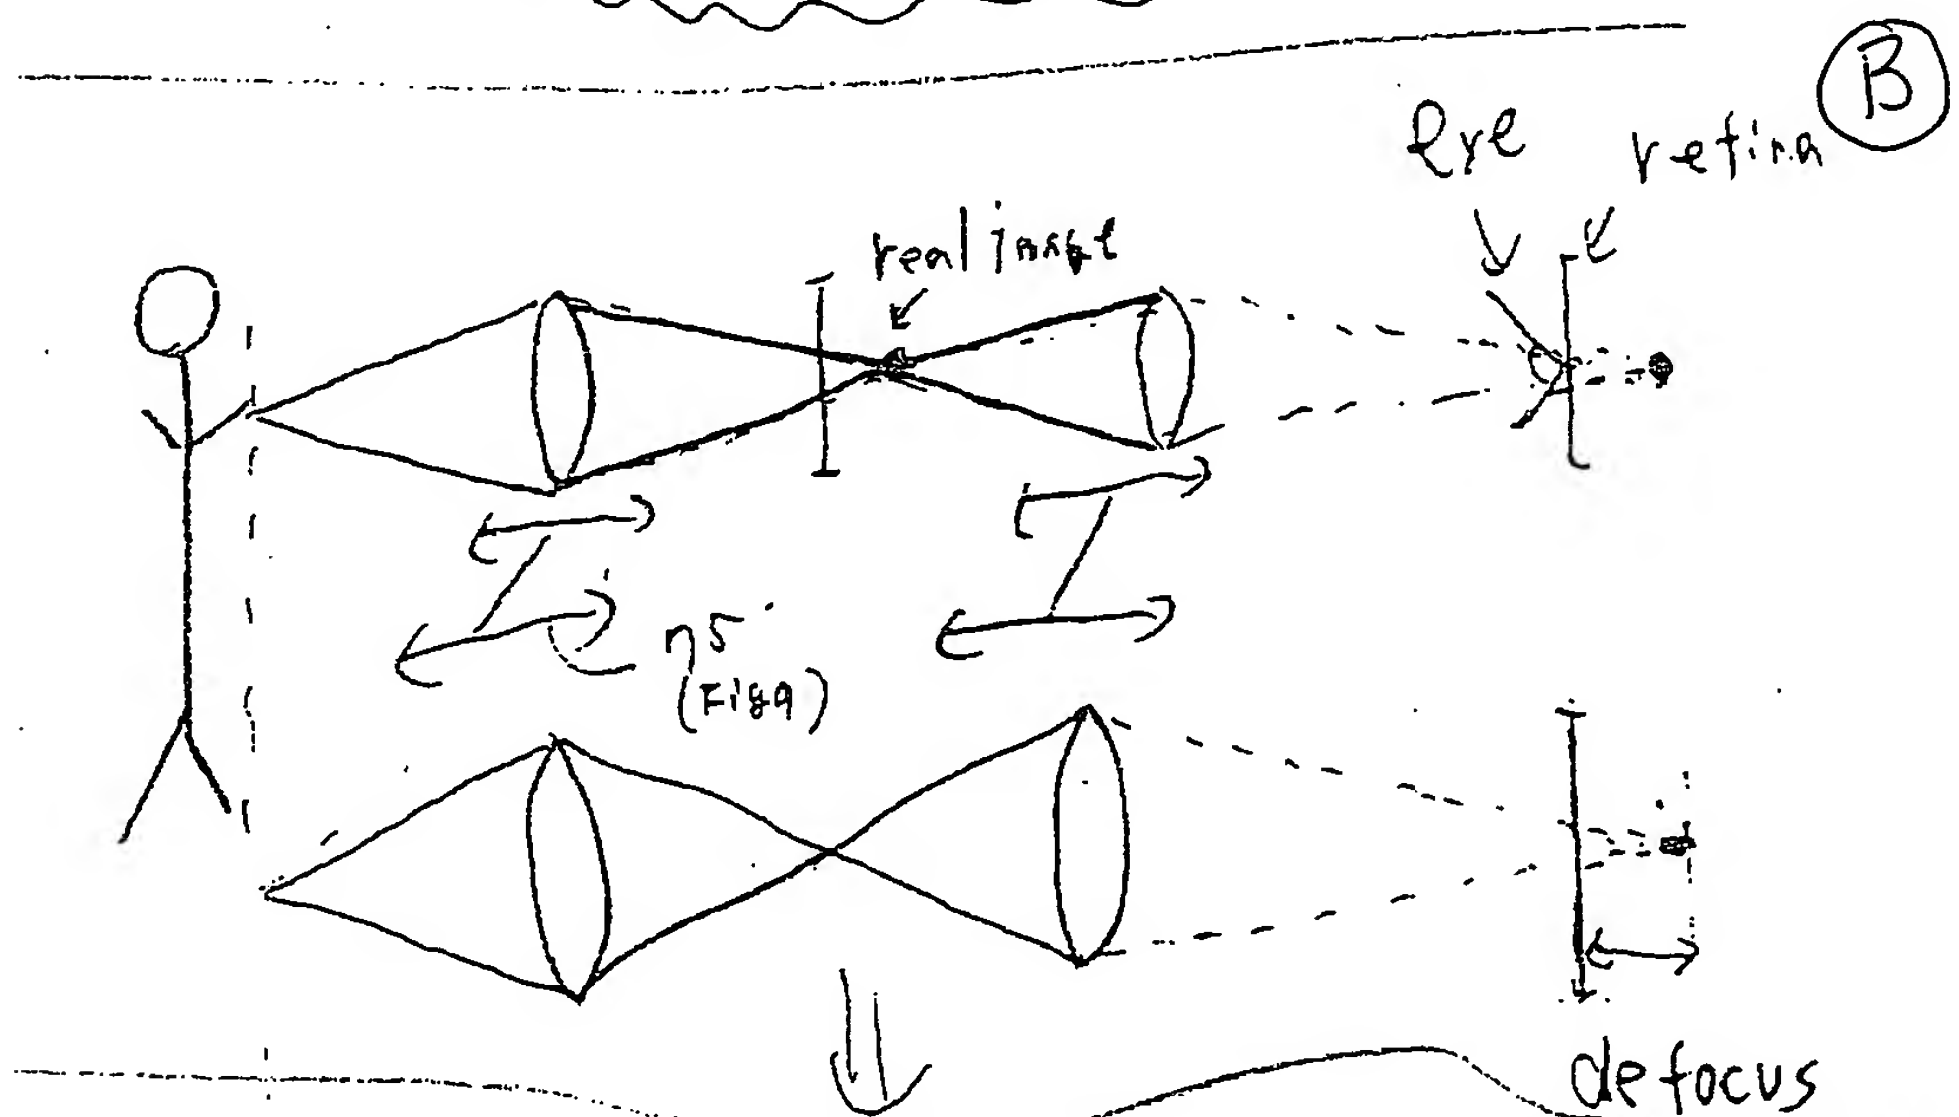 B
eye retina
real image
η5
(Fig 9)
defocus